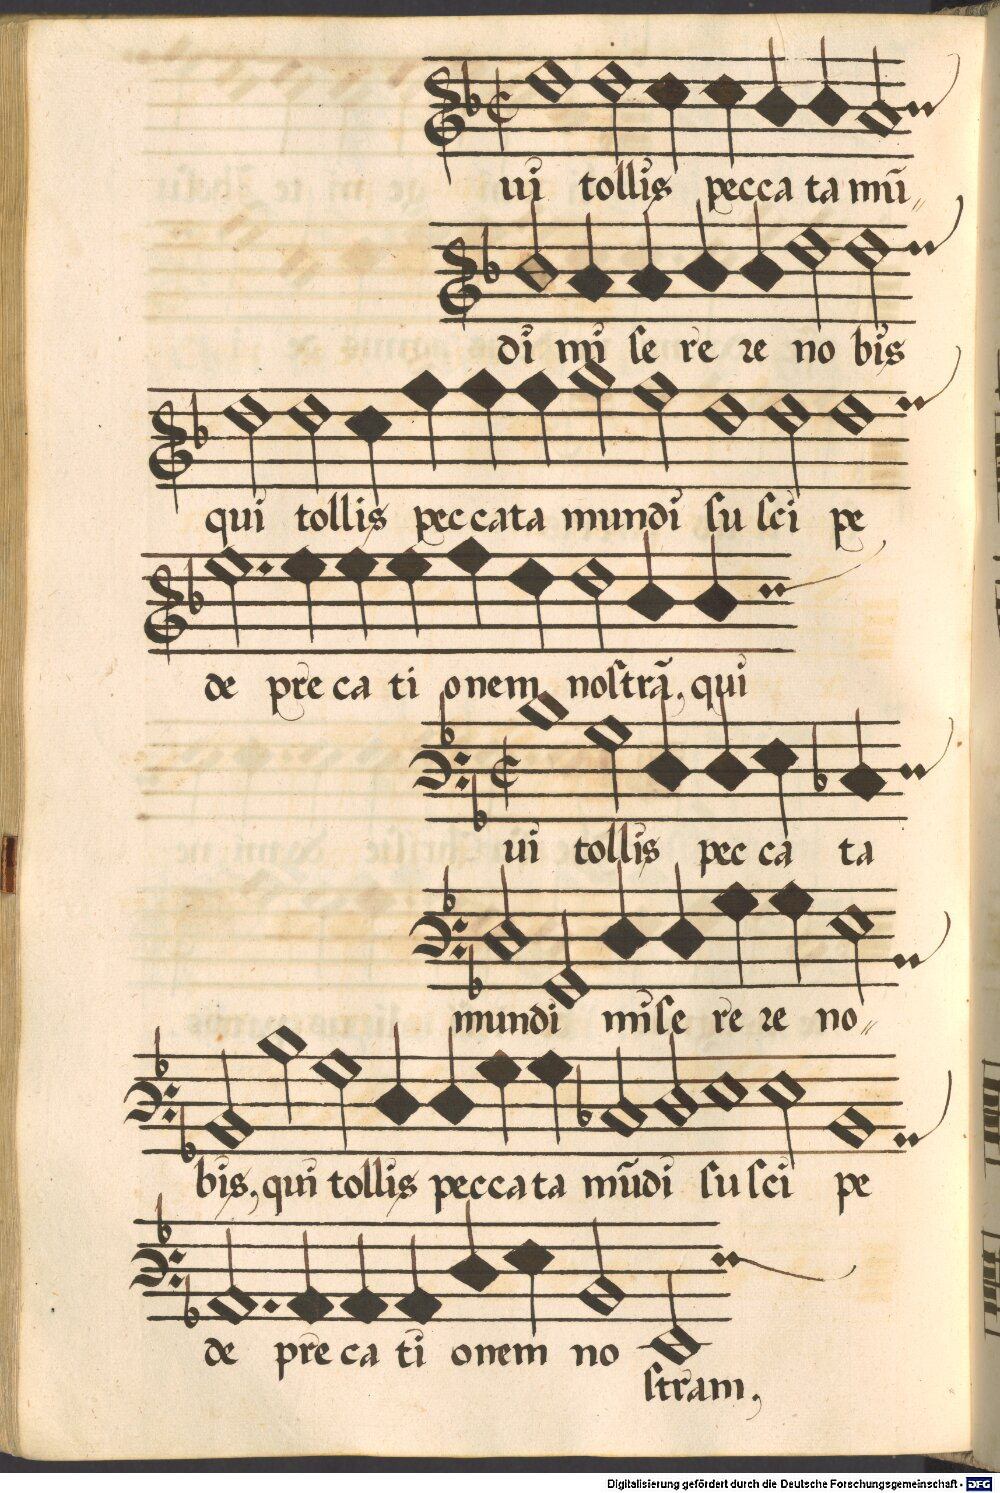 ui tollis pecca ta mū〃
di mi se re re no bis
qui tollis peccata mundi su sci pe
de pre ca ti onem nostrā, qui
ui tollis pec ca ta
mundi mise re re no〃
bis, qui tollis peccata mūdi su sci pe
de pre ca ti onem no
stram,
Digitalisierung gefördert durch die Deutsche Forschungsgemeinschaft - DFG